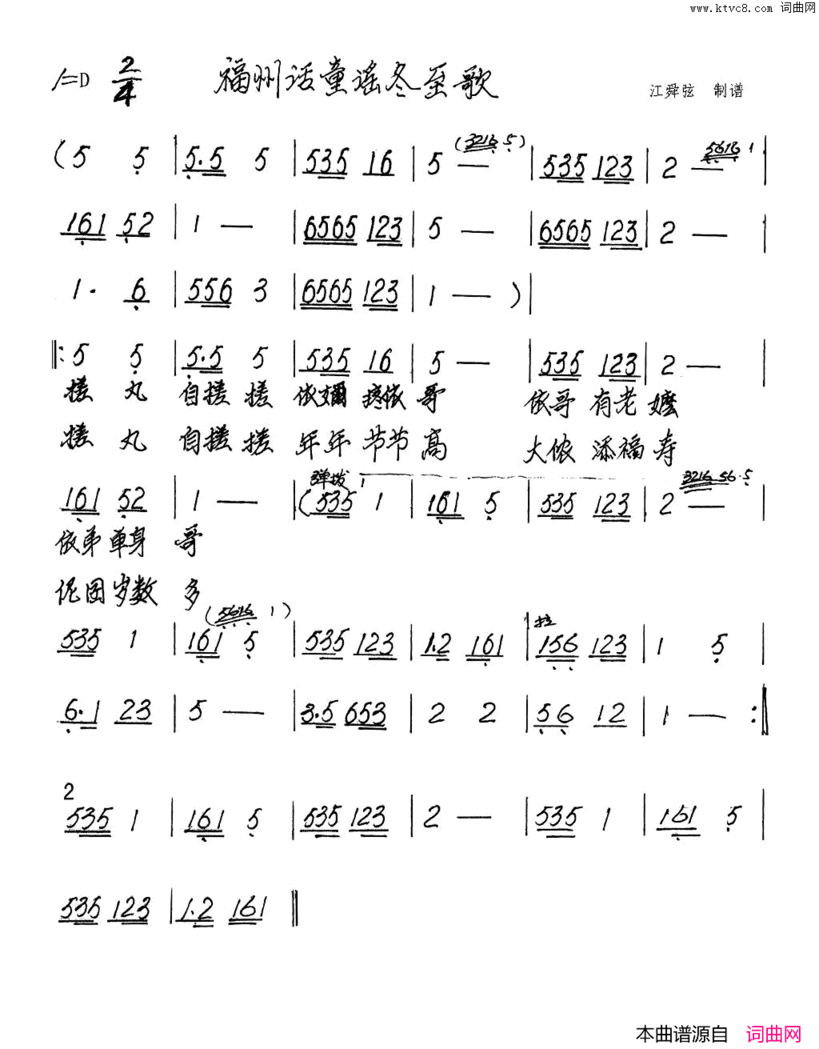 www.ktvc8.com 词曲网
1=D 2/4 福州话童谣冬至歌
江舜弦 制谱
( 5 5 | 5·5 5 | 535 16 | 5 — (3216 5) | 535 123 | 2 — 5616 1 |
161 52 | 1 — | 6565 123 | 5 — | 6565 123 | 2 — |
1· 6 | 556 3 | 6565 123 | 1 — ) |
‖: 5 5 | 5·5 5 | 535 16 | 5 — | 535 123 | 2 — |
搓 丸 自搓 搓 依嬭 疼依 哥 依哥 有老 嬷
搓 丸 自搓 搓 年年 节节 高 大依 添福 寿
弹拨 1 3216 56·5
161 52 | 1 — | (535 1 | 161 5 | 535 123 | 2 — |
依弟 单身 哥
伲囝 岁数 多
(5616 1) 拉
535 1 | 161 5 | 535 123 | 1·2 161 | 156 123 | 1 5 |
6·1 23 | 5 — | 3·5 653 | 2 2 | 56 12 | 1 — :‖
2
535 1 | 161 5 | 535 123 | 2 — | 535 1 | 161 5 |
535 123 | 1·2 161 ‖
本曲谱源自 词曲网